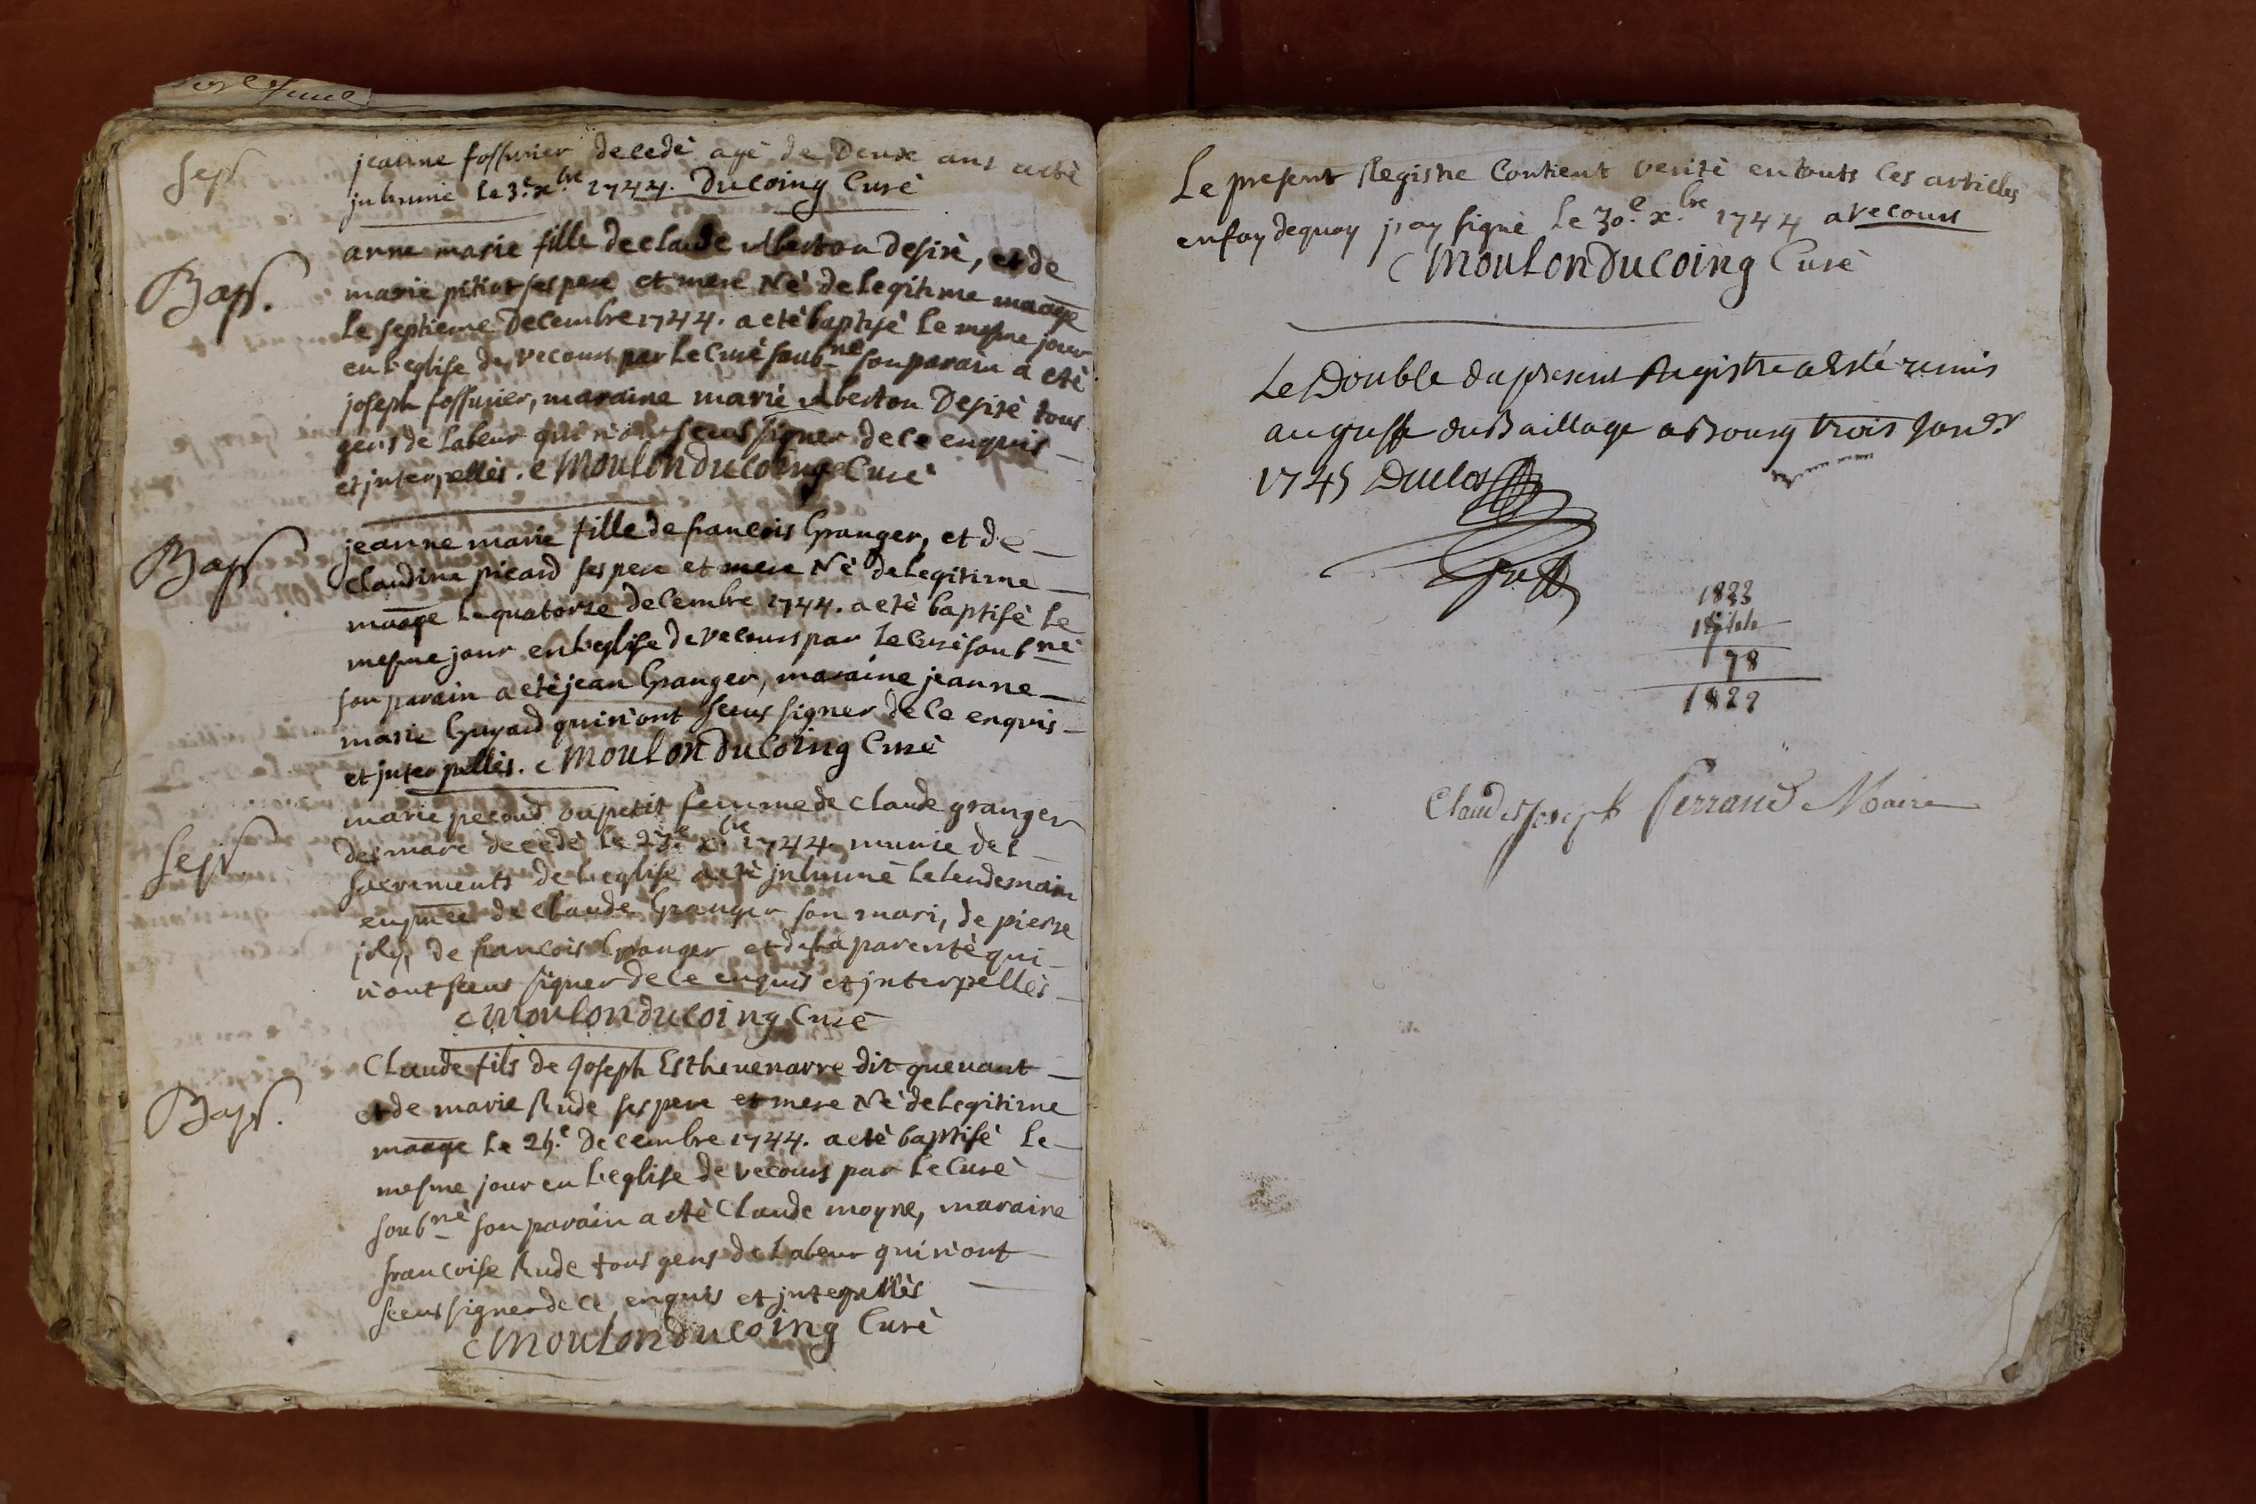 Sep.
jeanne fossurier decedè agè de Deux ans a etè
jnhumè le 3.e xbre 1744. Ducoing Curè
Bap.
anne marie fille de claude Alberton Desirè, et de
marie pitiot ses pere et mere Nè de legitime maage
le septieme Decembre 1744. a etè baptisè le mesme jour
en l'eglise de vecours par le Curè soubnè son parain a etè
joseph fossurier, maraine marie Alberton Desirè tous
gens de labeur qui n'ont sceus signer de ce enquis
et jnterpellès. Moulonducoing Curè
Bap
jeanne marie fille de francois Granger, et de
claudine picard ses pere et mere Nè de legitime
maage le quatorze decembre 1744. a etè baptisè le
mesme jour en l'eglise de vecours par le Curè soubnè
son parain a etè jean Granger, maraine jeanne
marie Guyard qui n'ont sceus signer de ce enquis
et jnterpellès. Moulonducoing Curè
Sep
marie pecoud dupetit femme de claude granger
demare decedè le 23.e xbre 1744 munie des
sacrements de l'eglise a etè jnhumè le lendemain
en pnce de claude Granger son mari, de pierre
joly, de francois Granger et de la parentè qui
n'ont sceus signer de ce enquis et jnterpellès
Moulonducoing Curè
Bap.
Claude fils de Joseph Esthevenarre dit quevant
et de marie Rude ses pere et mere Nè de legitime
maage le 25.e decembre 1744. a etè baptisè le
mesme jour en l'eglise de vecours par le Curè
soubnè son parain a etè Claude moyne, maraine
francoise Rude tous gens de labeur qui n'ont
sceus signer de ce enquis et jnterpellès
Moulonducoing Curè
Le present Registre Contient veritè en touts ces articles
en foy dequoy j'ay signè le 30.e xbre 1744 a vecours
Moulonducoing Curè
Le Double du present Registre a Esté remis
au greffe du Baillage a Bourg trois Janer
1745 Duclos
1823
1744
78
1822
Claude Joseph Perraud Maire